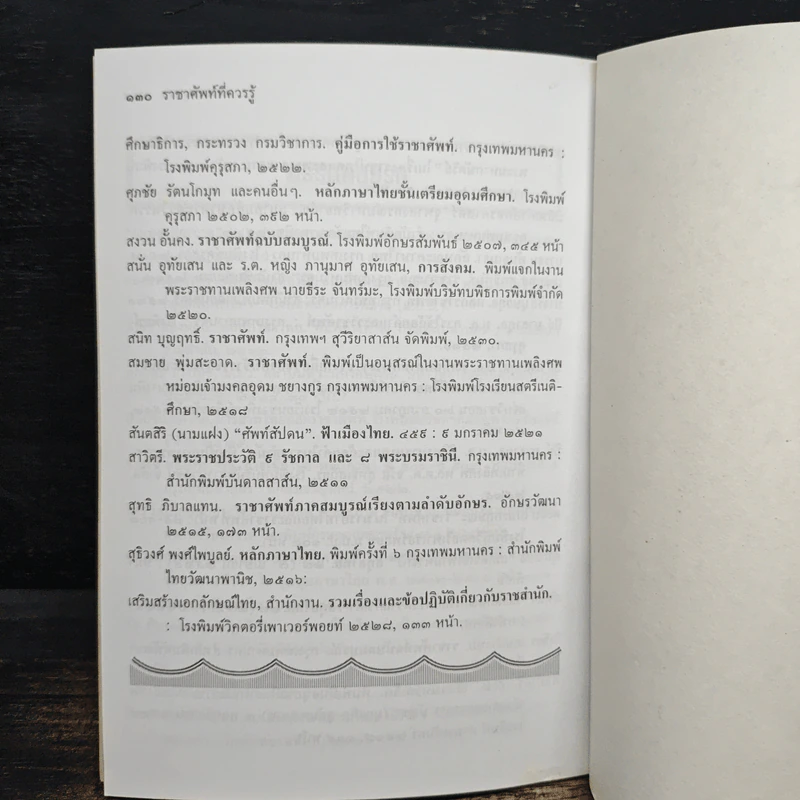 ๑๓๐ ราชาศัพท์ที่ควรรู้
ศึกษาธิการ, กระทรวง กรมวิชาการ. คู่มือการใช้ราชาศัพท์. กรุงเทพมหานคร :
โรงพิมพ์คุรุสภา, ๒๕๒๒.
ศุภชัย รัตนโกมุท และคนอื่นๆ. หลักภาษาไทยชั้นเตรียมอุดมศึกษา. โรงพิมพ์
คุรุสภา ๒๕๐๒, ๓๙๒ หน้า.
สงวน อั้นคง. ราชาศัพท์ฉบับสมบูรณ์. โรงพิมพ์อักษรสัมพันธ์ ๒๕๐๗, ๓๔๕ หน้า
สนั่น อุทัยเสน และ ร.ต. หญิง ภานุมาศ อุทัยเสน, การสังคม. พิมพ์แจกในงาน
พระราชทานเพลิงศพ นายธีระ จันทร์มะ, โรงพิมพ์บริษัทบพิธการพิมพ์จำกัด
๒๕๒๐.
สนิท บุญฤทธิ์. ราชาศัพท์. กรุงเทพฯ สุวีริยาสาส์น จัดพิมพ์, ๒๕๓๐.
สมชาย พุ่มสะอาด. ราชาศัพท์. พิมพ์เป็นอนุสรณ์ในงานพระราชทานเพลิงศพ
หม่อมเจ้ามงคลอุดม ชยางกูร กรุงเทพมหานคร : โรงพิมพ์โรงเรียนสตรีเนติ-
ศึกษา, ๒๕๑๘
สันตสิริ (นามแฝง) “ศัพท์สัปดน”. ฟ้าเมืองไทย. ๔๕๙ : ๙ มกราคม ๒๕๒๑
สาวิตรี. พระราชประวัติ ๙ รัชกาล และ ๘ พระบรมราชินี. กรุงเทพมหานคร :
สำนักพิมพ์บันดาลสาส์น, ๒๕๑๑
สุทธิ ภิบาลแทน. ราชาศัพท์ภาคสมบูรณ์เรียงตามลำดับอักษร. อักษรวัฒนา
๒๕๑๕, ๑๗๓ หน้า.
สุธิวงศ์ พงศ์ไพบูลย์. หลักภาษาไทย. พิมพ์ครั้งที่ ๖ กรุงเทพมหานคร : สำนักพิมพ์
ไทยวัฒนาพานิช, ๒๕๑๖:
เสริมสร้างเอกลักษณ์ไทย, สำนักงาน. รวมเรื่องและข้อปฏิบัติเกี่ยวกับราชสำนัก.
: โรงพิมพ์วิคตอรี่เพาเวอร์พอยท์ ๒๕๒๘, ๑๓๓ หน้า.